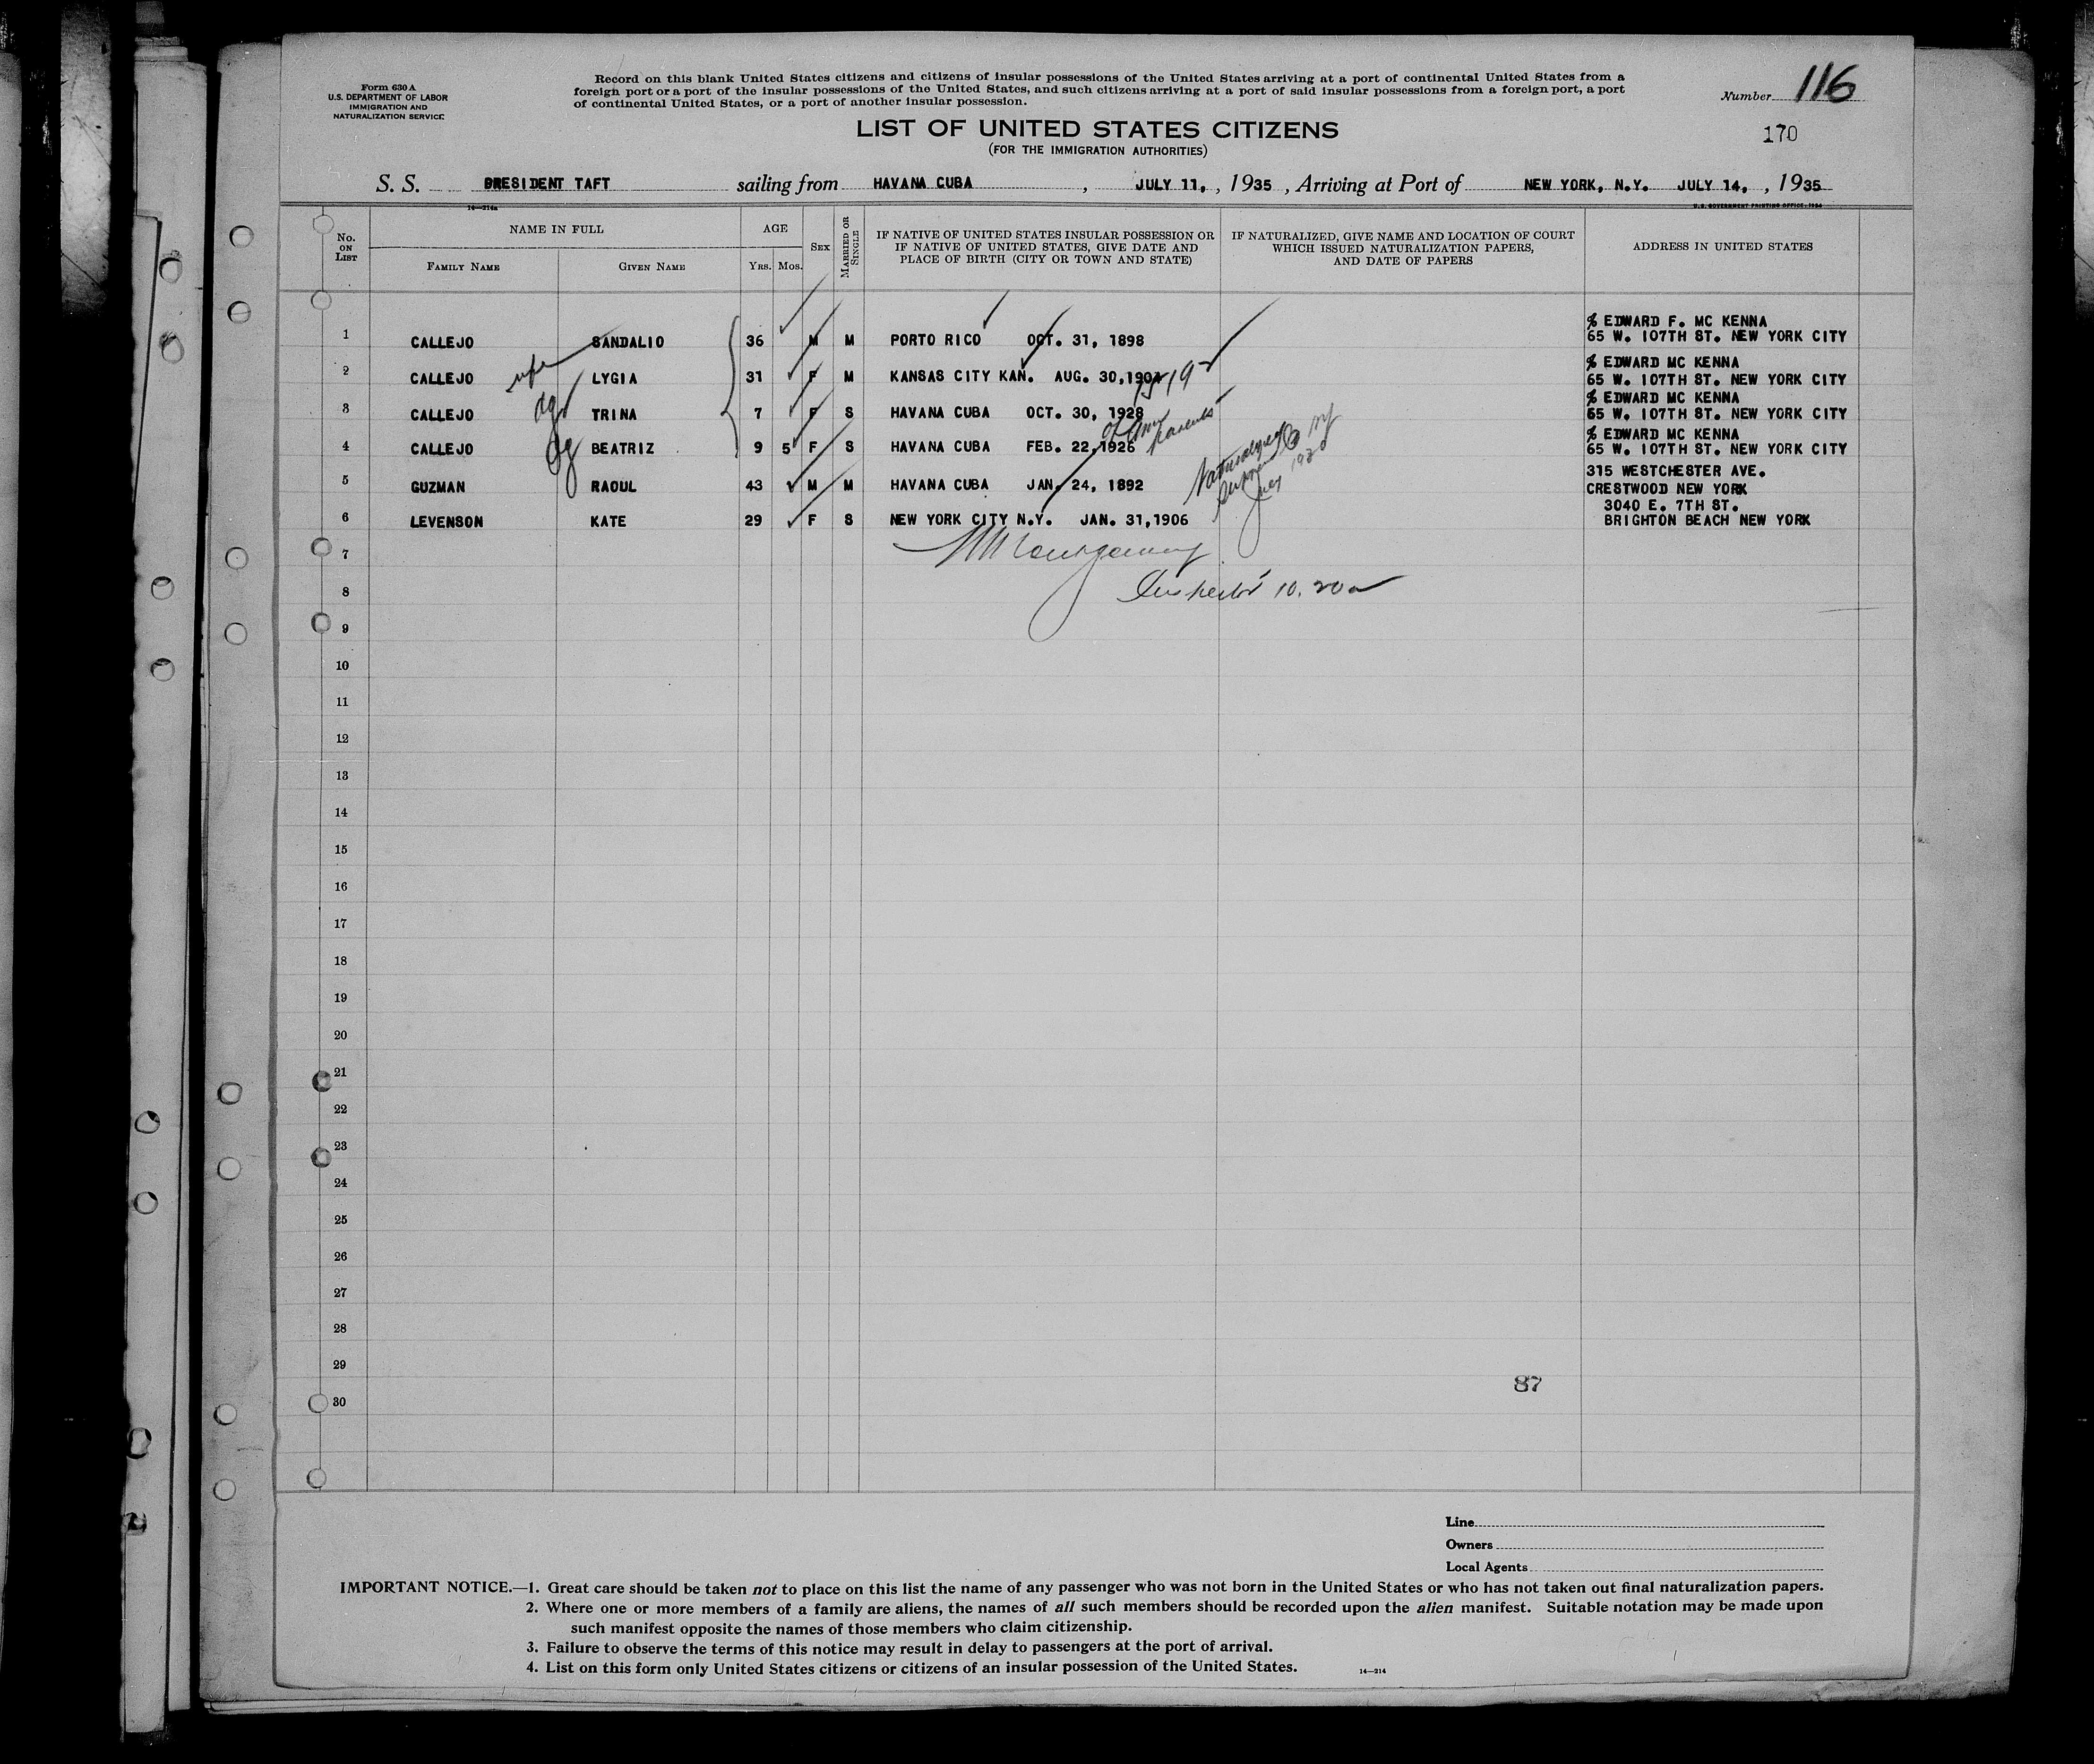 Form 630 A
U.S. DEPARTMENT OF LABOR
IMMIGRATION AND
NATURALIZATION SERVICE
Record on this blank United States citizens and citizens of insular possessions of the United States arriving at a port of continental United States from a
foreign port or a port of the insular possessions of the United States, and such citizens arriving at a port of said insular possessions from a foreign port, a port
of continental United States, or a port of another insular possession.
Number 116
LIST OF UNITED STATES CITIZENS
(FOR THE IMMIGRATION AUTHORITIES)
170
S. S. PRESIDENT TAFT sailing from HAVANA CUBA , JULY 11, , 1935 , Arriving at Port of NEW YORK, N.Y. JULY 14, , 1935
14—214a
U.S. GOVERNMENT PRINTING OFFICE: 1934
No. ON LIST
NAME IN FULL
FAMILY NAME
GIVEN NAME
AGE
YRS.
MOS.
SEX
MARRIED OR SINGLE
IF NATIVE OF UNITED STATES INSULAR POSSESSION OR
IF NATIVE OF UNITED STATES, GIVE DATE AND
PLACE OF BIRTH (CITY OR TOWN AND STATE)
IF NATURALIZED, GIVE NAME AND LOCATION OF COURT
WHICH ISSUED NATURALIZATION PAPERS,
AND DATE OF PAPERS
ADDRESS IN UNITED STATES
1 CALLEJO SANDALIO 36 M M PORTO RICO OCT. 31, 1898 % EDWARD F. MC KENNA
65 W. 107TH ST. NEW YORK CITY
wife
2 CALLEJO LYGIA 31 F M KANSAS CITY KAN. AUG. 30,1904 % EDWARD MC KENNA
65 W. 107TH ST. NEW YORK CITY
dg
3 CALLEJO TRINA 7 F S HAVANA CUBA OCT. 30, 1928 % EDWARD MC KENNA
65 W. 107TH ST. NEW YORK CITY
of Am parents
dg
4 CALLEJO BEATRIZ 9 5 F S HAVANA CUBA FEB. 22,1926 % EDWARD MC KENNA
65 W. 107TH ST. NEW YORK CITY
5 GUZMAN RAOUL 43 M M HAVANA CUBA JAN. 24, 1892 315 WESTCHESTER AVE.
CRESTWOOD NEW YORK
Naturalized
6 LEVENSON KATE 29 F S NEW YORK CITY N.Y. JAN. 31,1906 3040 E. 7TH ST.
BRIGHTON BEACH NEW YORK
7
Montgomery
8
Inspector 10.20a
9
10
11
12
13
14
15
16
17
18
19
20
21
22
23
24
25
26
27
28
29
87
30
Line
Owners
Local Agents
IMPORTANT NOTICE.—1. Great care should be taken not to place on this list the name of any passenger who was not born in the United States or who has not taken out final naturalization papers.
2. Where one or more members of a family are aliens, the names of all such members should be recorded upon the alien manifest. Suitable notation may be made upon
such manifest opposite the names of those members who claim citizenship.
3. Failure to observe the terms of this notice may result in delay to passengers at the port of arrival.
4. List on this form only United States citizens or citizens of an insular possession of the United States.
14—214